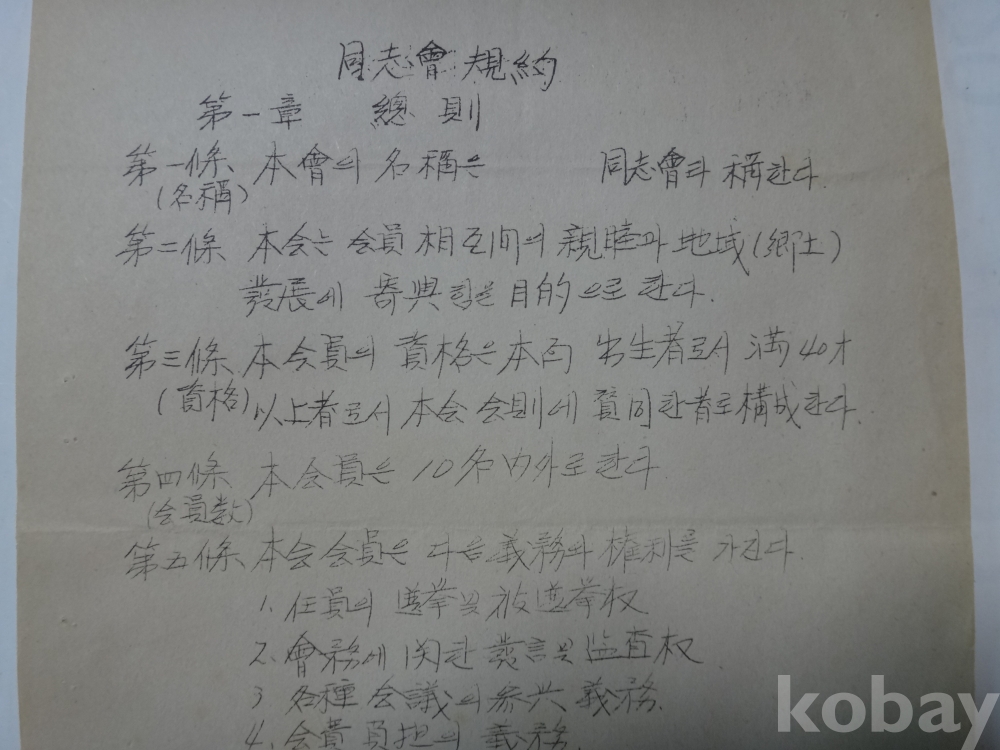 同志會 規約
第一章 總則
第一條 本會의 名稱은 同志會라 稱한다.
(名稱)
第二條 本会는 会員 相互间의 親睦과 地域(鄕土)
發展에 寄與함을 目的으로 한다.
第三條 本会員의 資格은 本面 出生者로서 満 40才
(資格) 以上者로서 本会 会則에 賛同한 者로 構成한다.
第四條 本会員은 10名 内外로 한다
(会員数)
第五條 本会 会員은 다음 義務와 權利를 가진다.
1. 任員의 選挙 및 被選挙权
2. 會務에 関한 發言 및 监査权
3 各種 会議의 参与 義務.
4. 会費 負担의 義務.
kobay